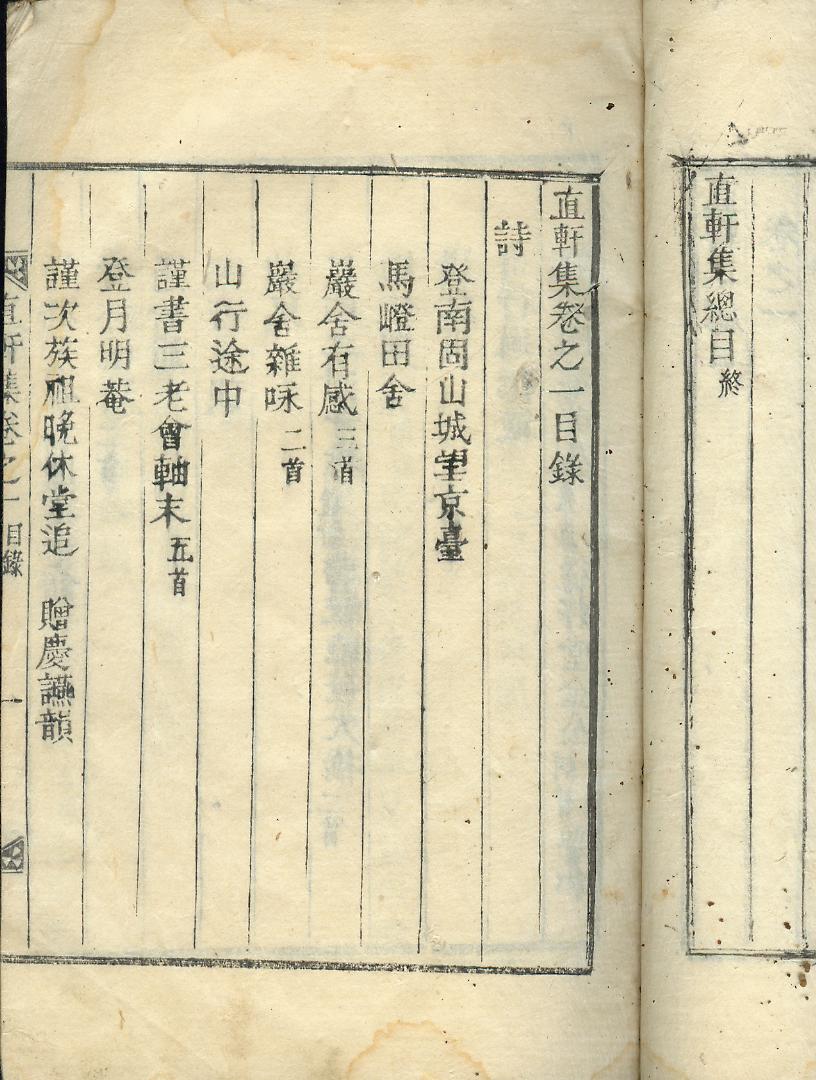 直軒集總目 終
直軒集卷之一目錄
詩
登南固山城望京臺
馬嶝田舍
巖舍有感 三首
巖舍雜咏 二首
山行途中
謹書三老會軸末 五首
登月明菴
謹次族祖晩休堂追 贈慶讌韻
直軒集卷之一 目錄 一